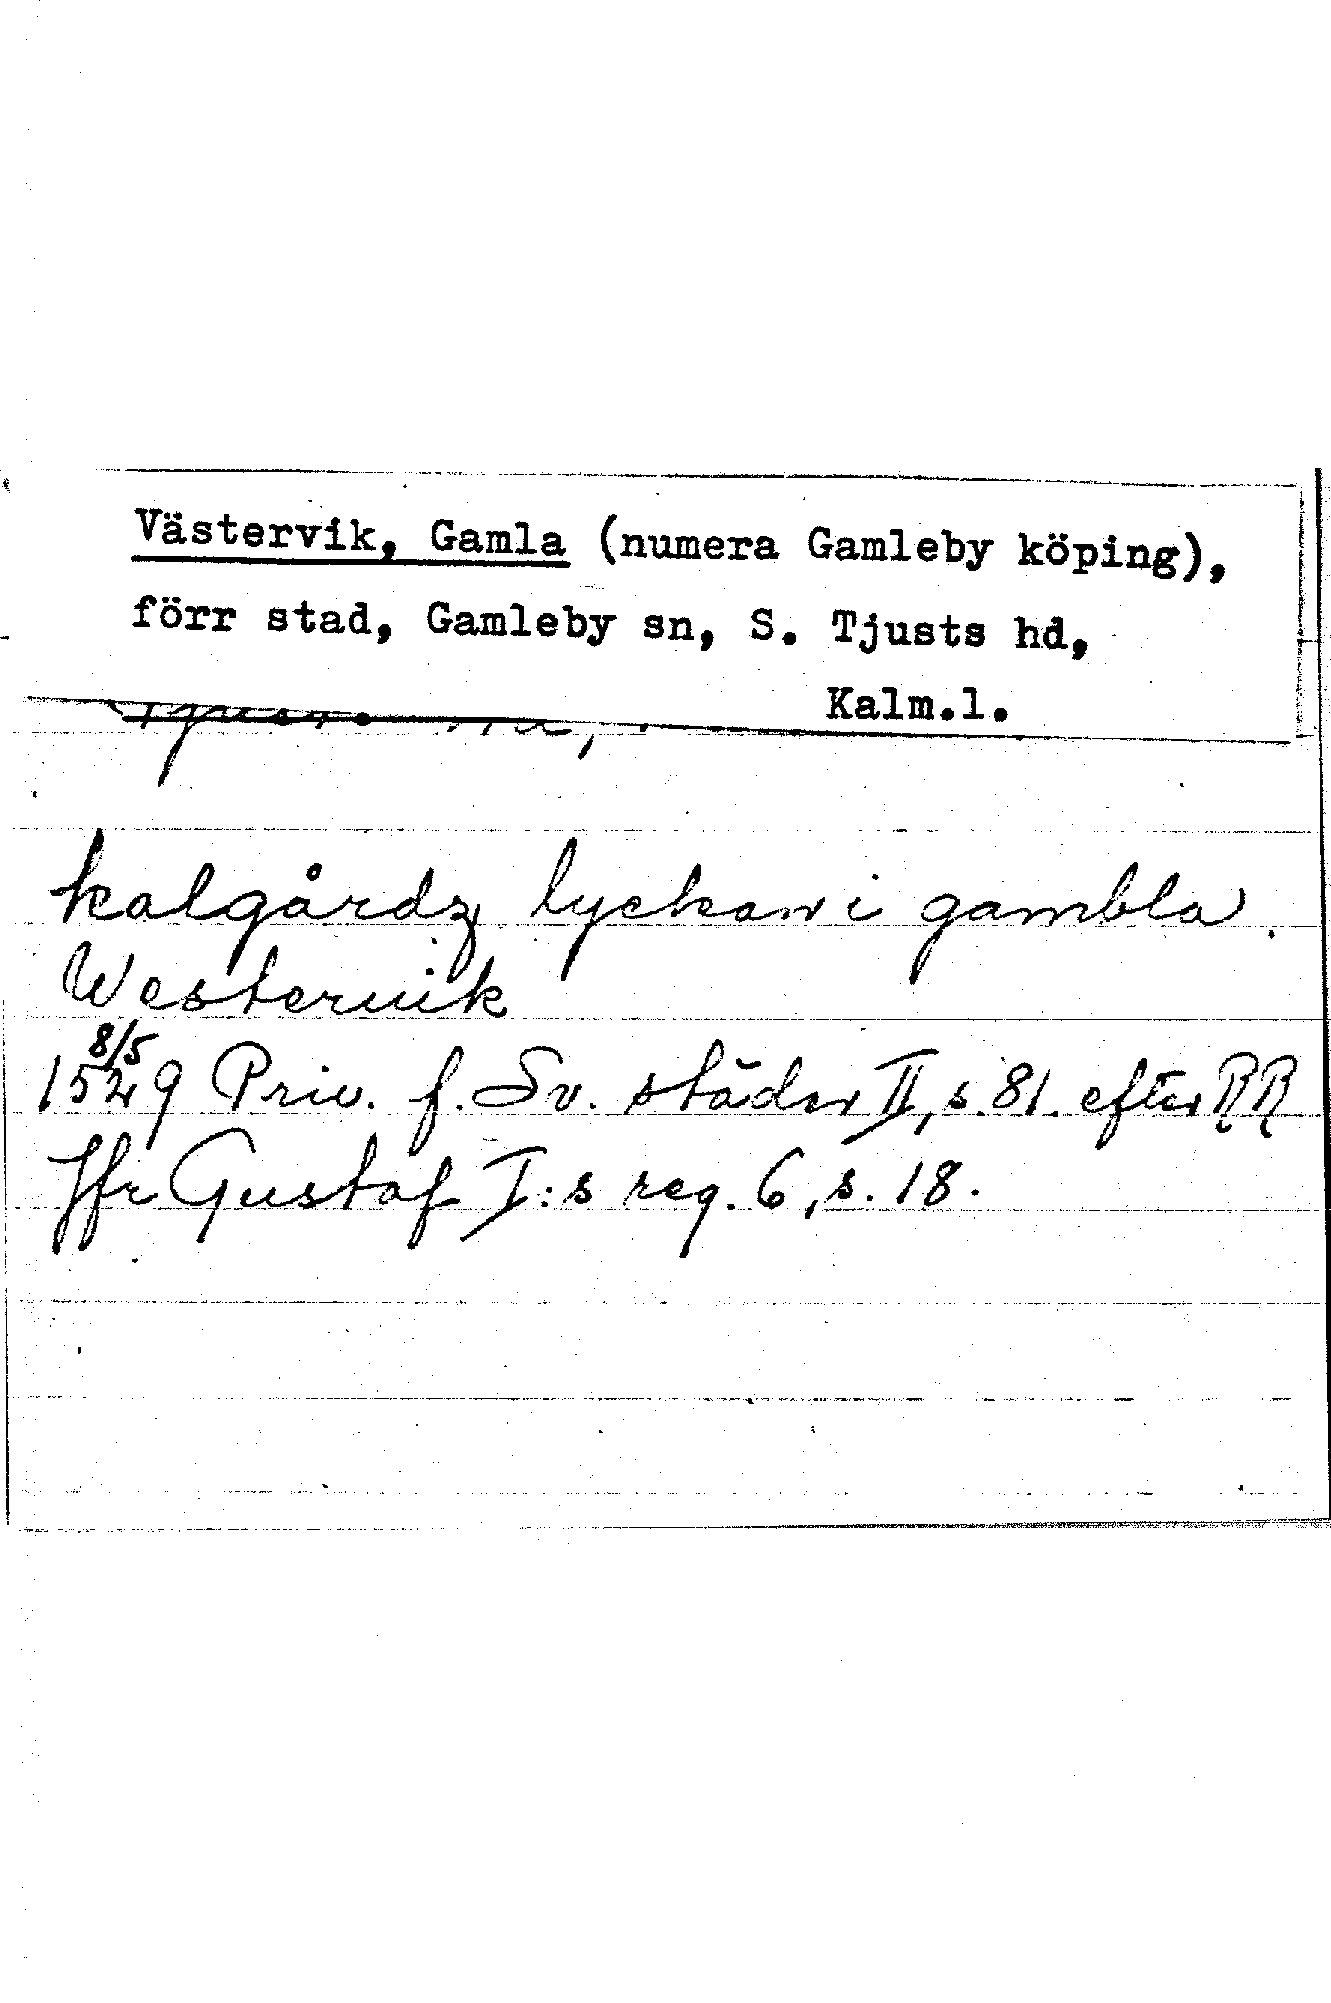 Västervik, Gamla (numera Gamleby köping),
förr stad, Gamleby sn, S. Tjusts hd,
Kalm.l.
kalgårdz lyckan i gambla
Westeruik
8/5
1529 Priv. f. Sv. städer II, s. 81. efter RR
Jfr Gustaf I:s reg. 6, s. 18.